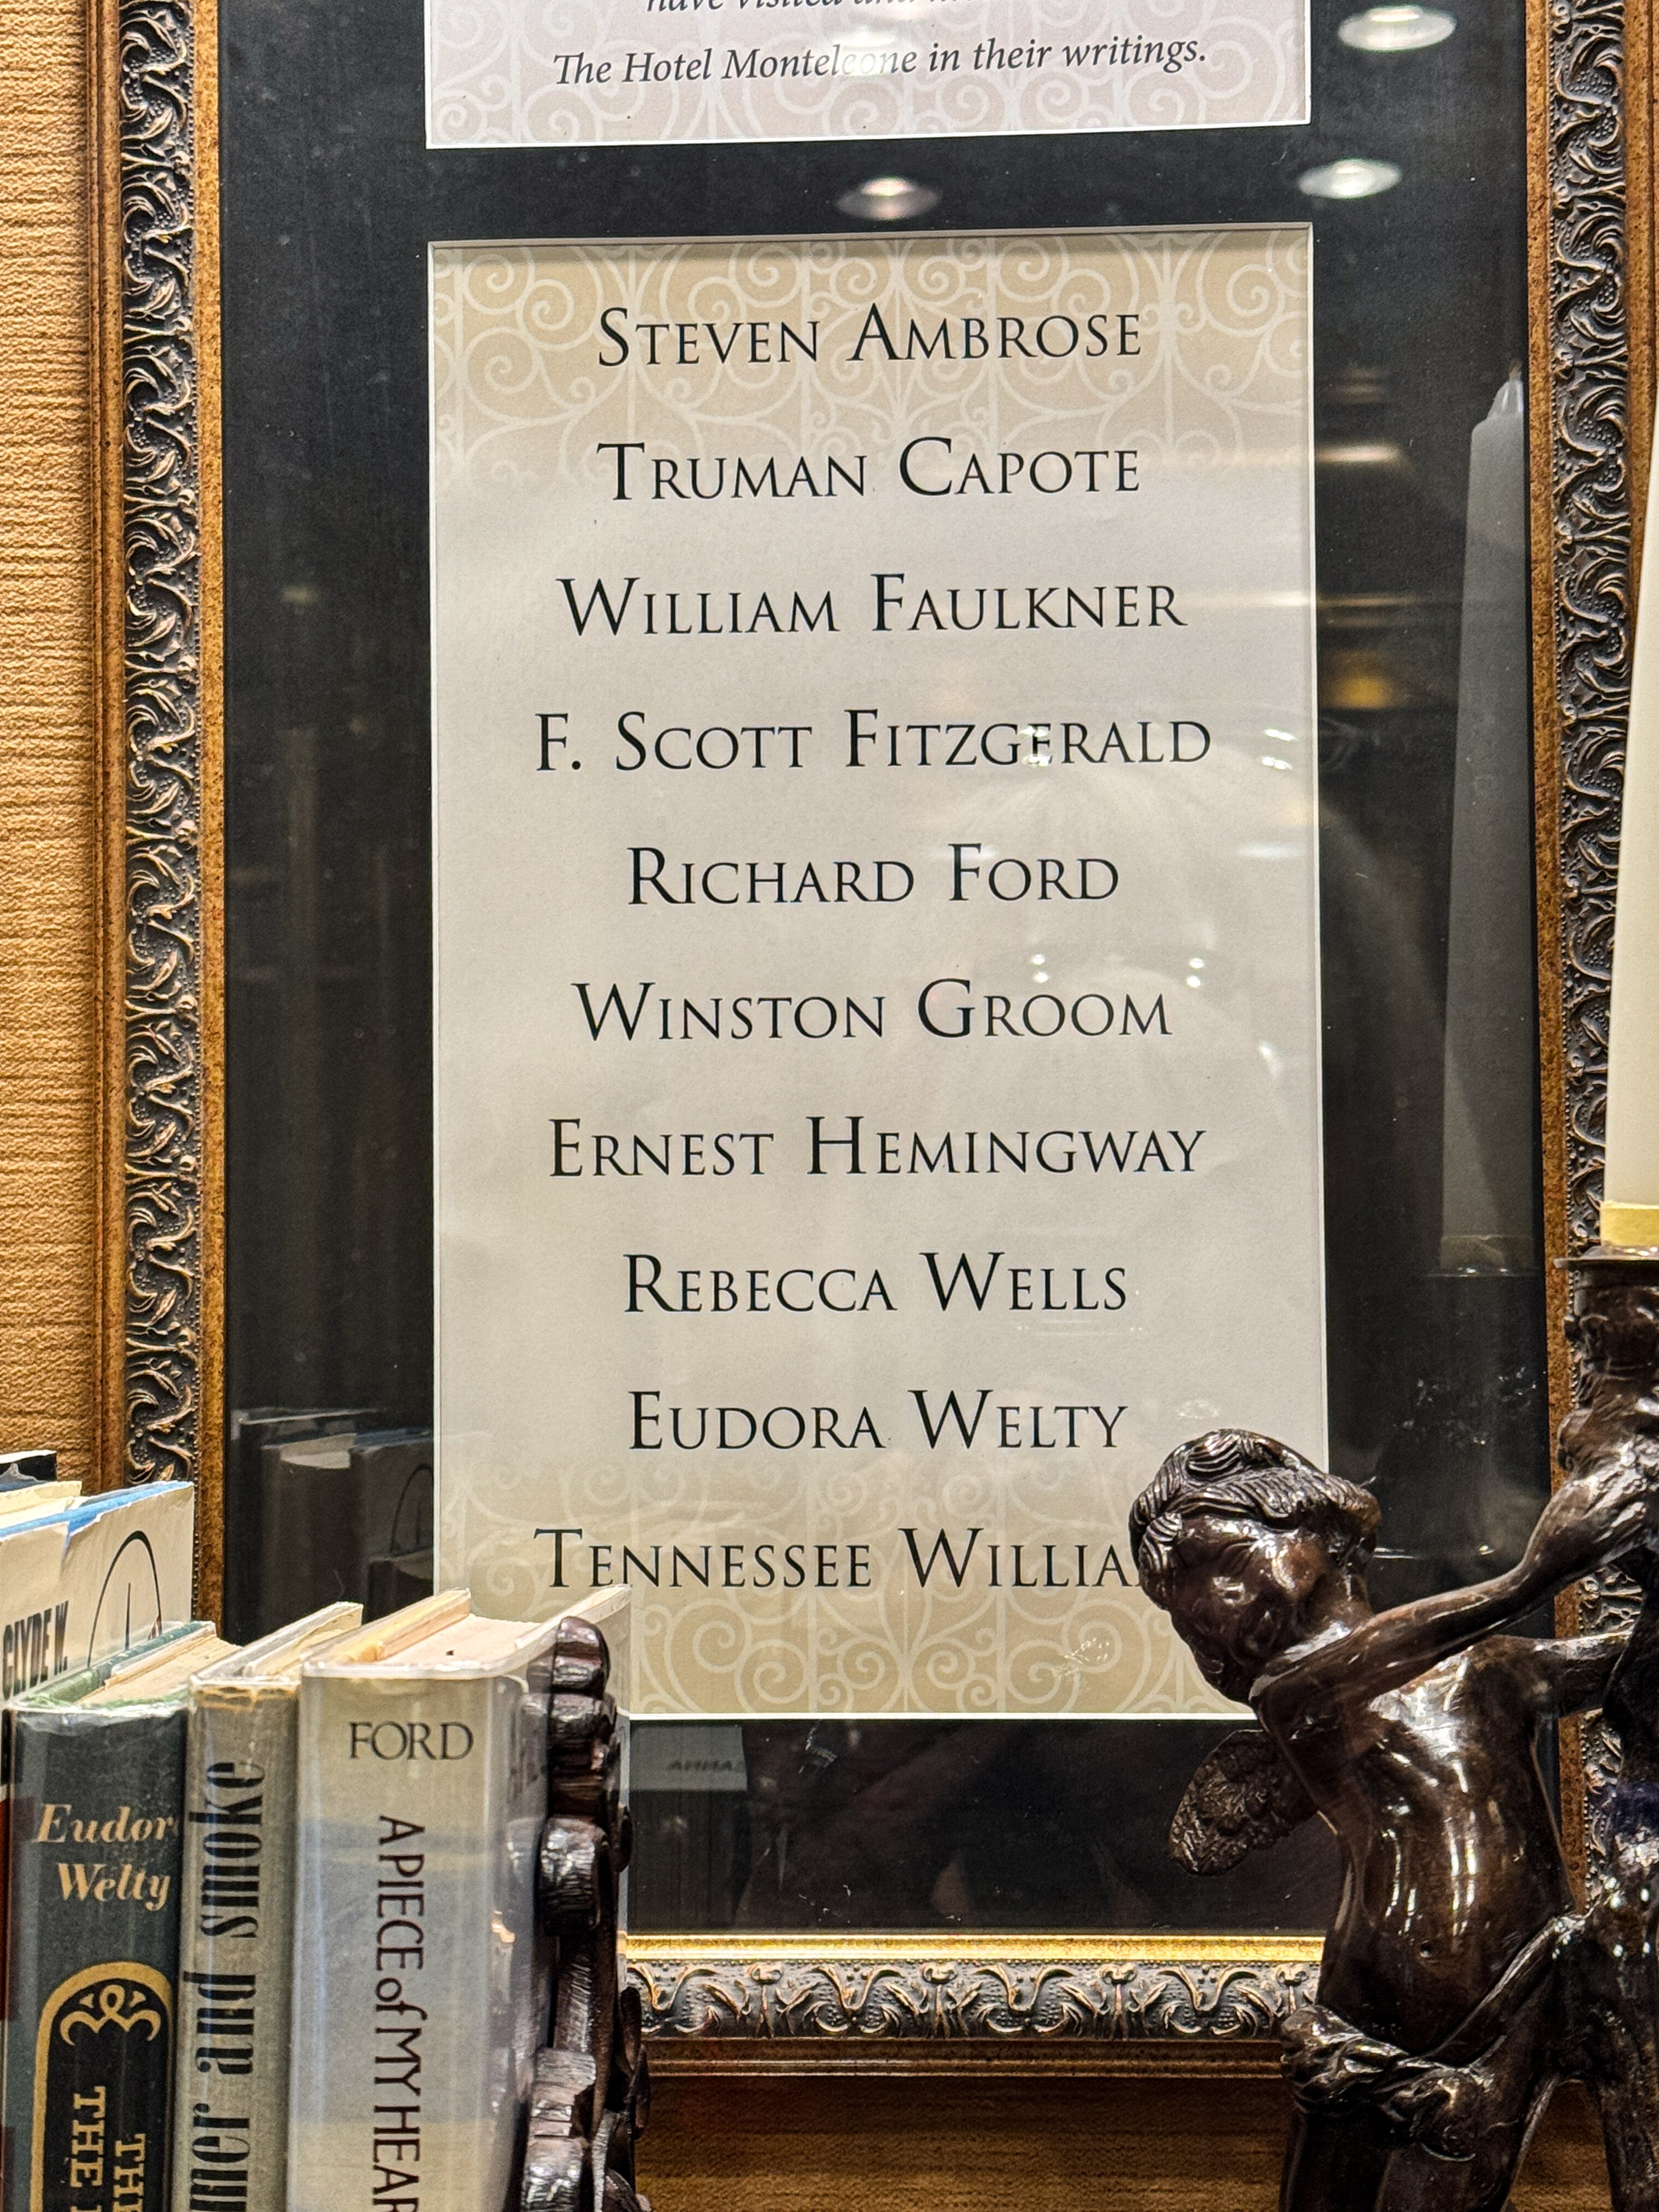 have visited and
The Hotel Monteleone in their writings.
STEVEN AMBROSE
TRUMAN CAPOTE
WILLIAM FAULKNER
F. SCOTT FITZGERALD
RICHARD FORD
WINSTON GROOM
ERNEST HEMINGWAY
REBECCA WELLS
EUDORA WELTY
TENNESSEE WILLIA
CLYDE W.
Eudor
Welty
THE
mer and smoke
FORD
A PIECE of MY HEAR